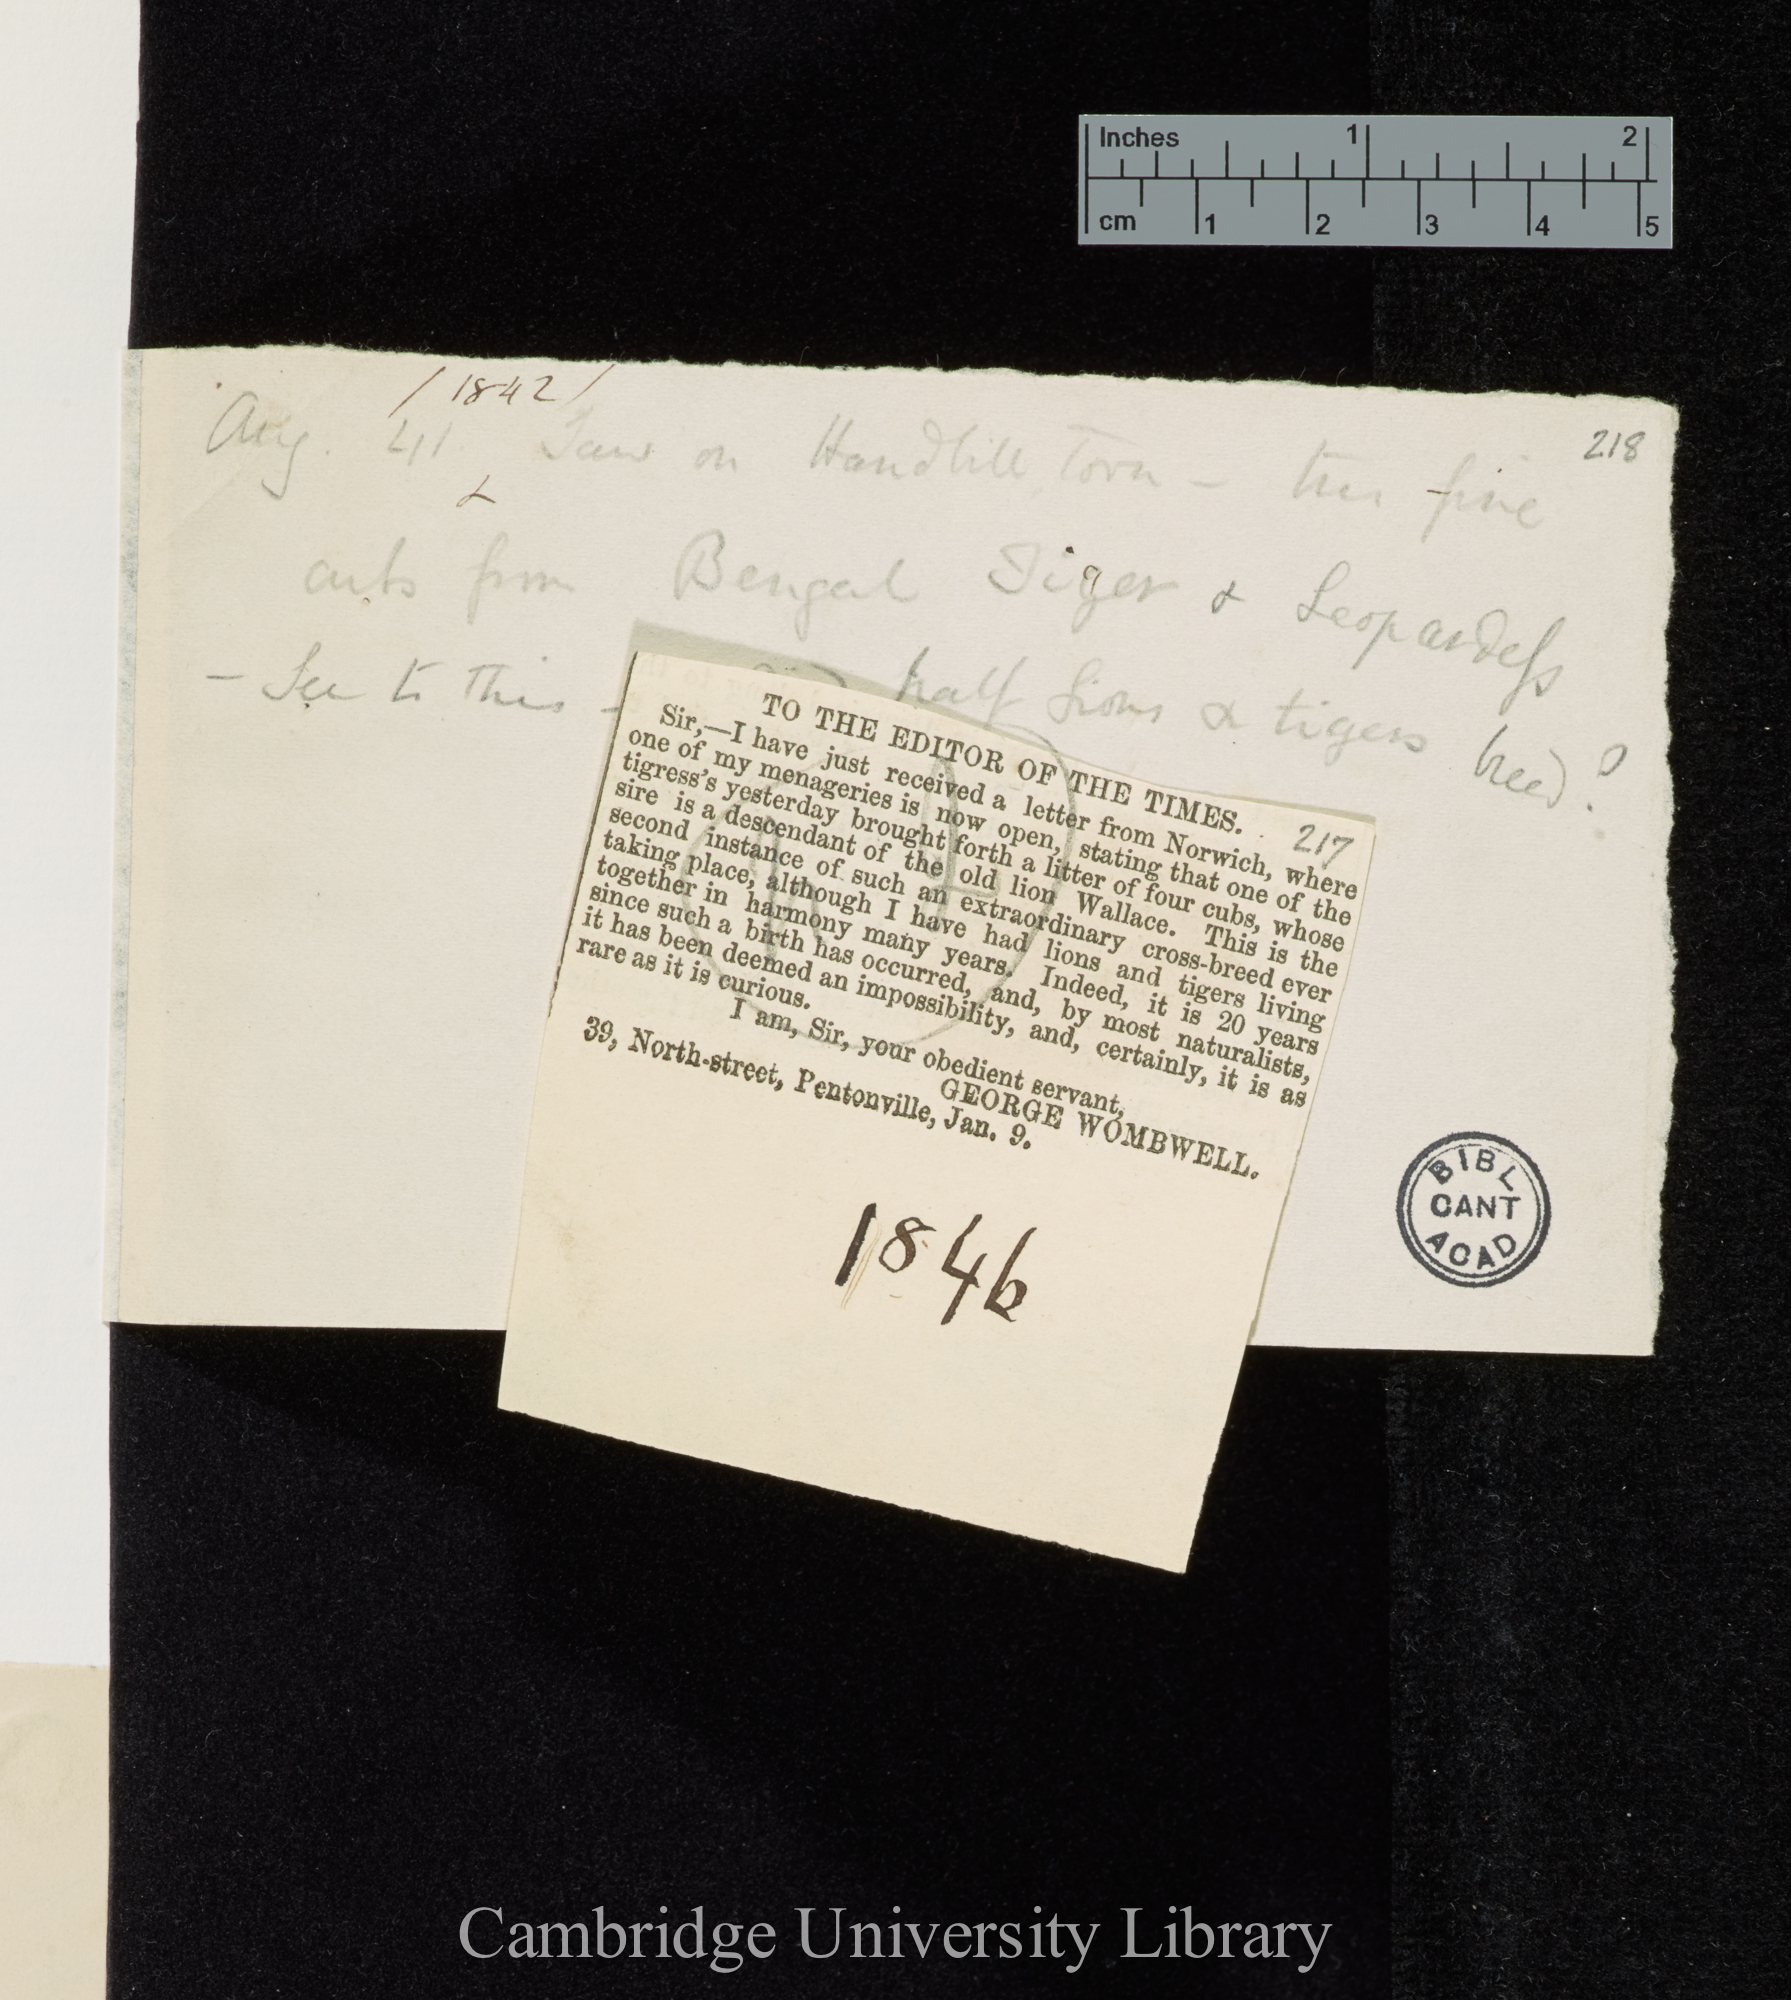 Inches 1 2
cm 1 2 3 4 5
/ 1842 /
218
Aug. 41 Saw on Handbill, Torn – this fine
&
cubs from Bengal Tiger & Leopardess
– See to this – half Lions & tigers breed?
217
TO THE EDITOR OF THE TIMES.
Sir,—I have just received a letter from Norwich, where
one of my menageries is now open, stating that one of the
tigress's yesterday brought forth a litter of four cubs, whose
sire is a descendant of the old lion Wallace. This is the
second instance of such an extraordinary cross-breed ever
taking place, although I have had lions and tigers living
together in harmony many years. Indeed, it is 20 years
since such a birth has occurred, and, by most naturalists,
it has been deemed an impossibility, and, certainly, it is as
rare as it is curious.
I am, Sir, your obedient servant,
GEORGE WOMBWELL.
39, North-street, Pentonville, Jan. 9.
1846
BIBL
CANT
ACAD
Cambridge University Library